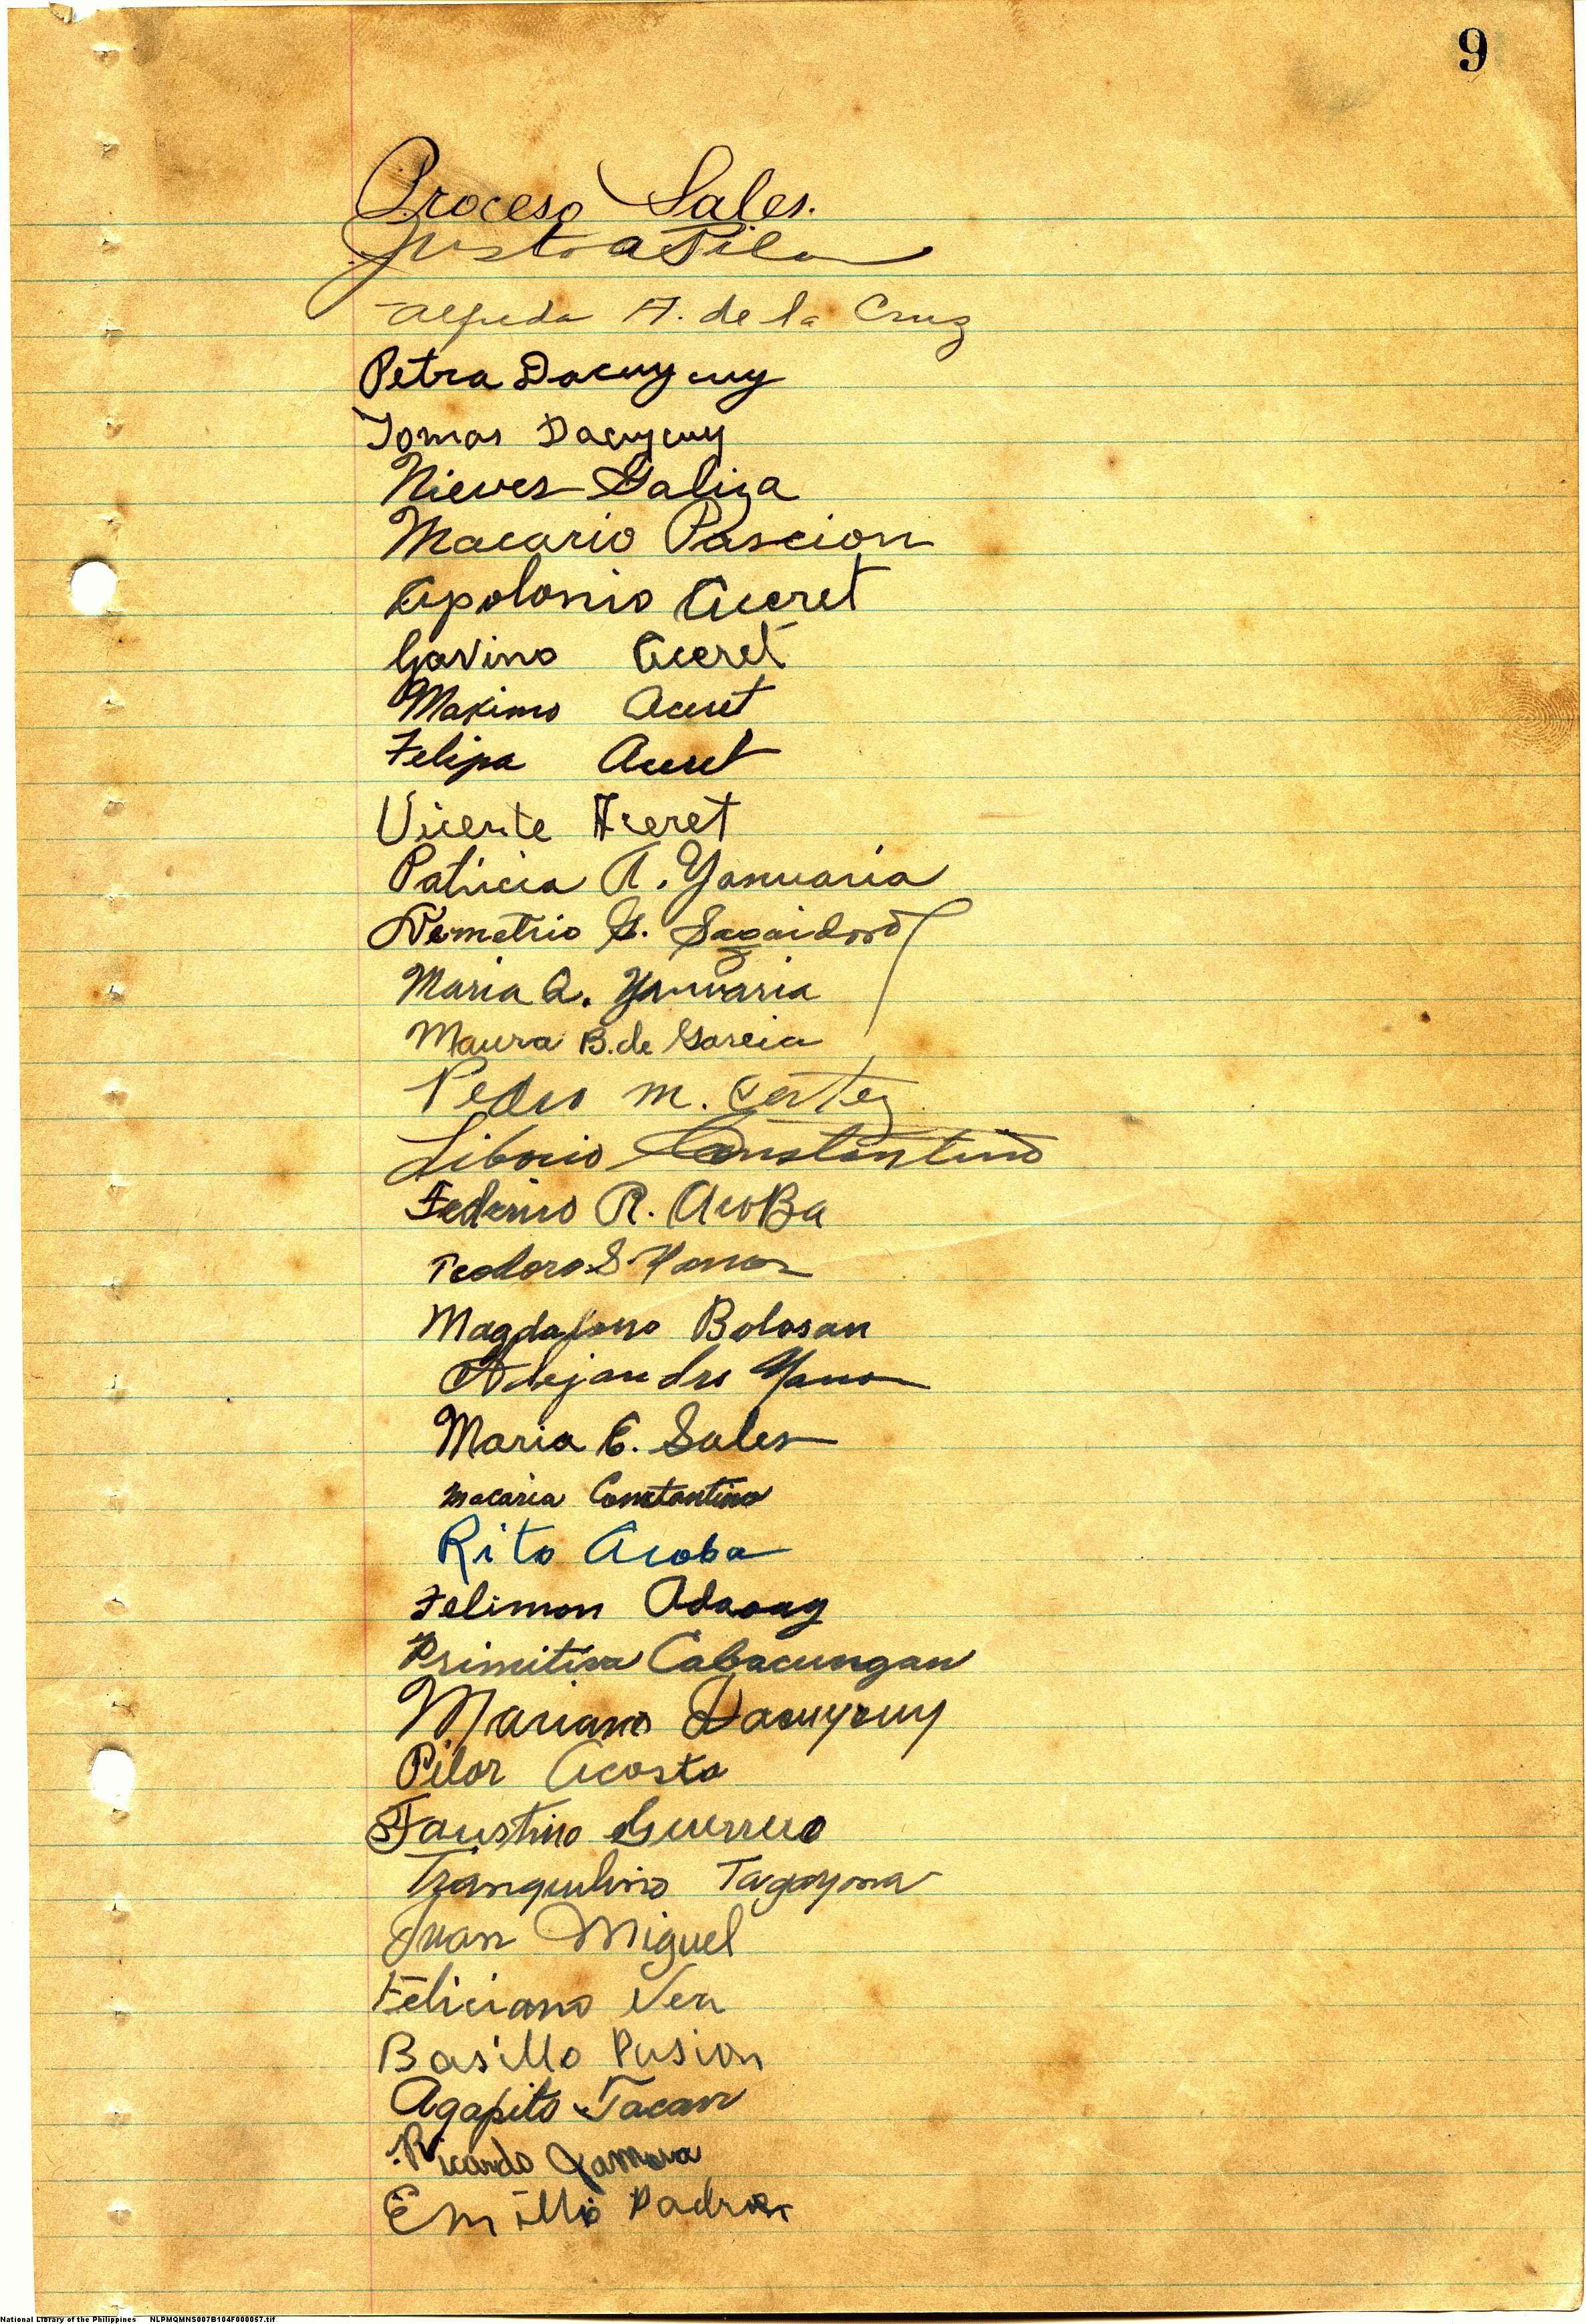 9
Proceso Sales.
Justo a Pil
Alfreda A. de la Cruz
Petra Dacuycuy
Tomas Dacuycuy
Nieves Galiza
Macario Pascion
Apolonio Aceret
Gavino Aceret
Maximo Aceret
Felipa Aceret
Vicente Aceret
Patricia A. Yanuaria
Demetrio G.
Maria A. Yanuaria
Maura B. de Garcia
Pedro M. Cortez
Liborio Constantino
Federico R. AcoBa
Teodoro S.
Magdaleno Bolosan
Alejandro
Maria E. Sales
Macaria Constantino
Rito Acoba
Felimon Adaoag
Primitiva Cabacungan
Mariano Dacuycuy
Pilar Acosta
Faustino Guerrero
Tranquilino Tagayona
Juan Miguel
Feliciano Ver
Basillo Pasion
Agapito Tacan
Ricardo Zamora
Emillio Padron
National Library of the Philippines NLPMQMNS007B104F000057.tif